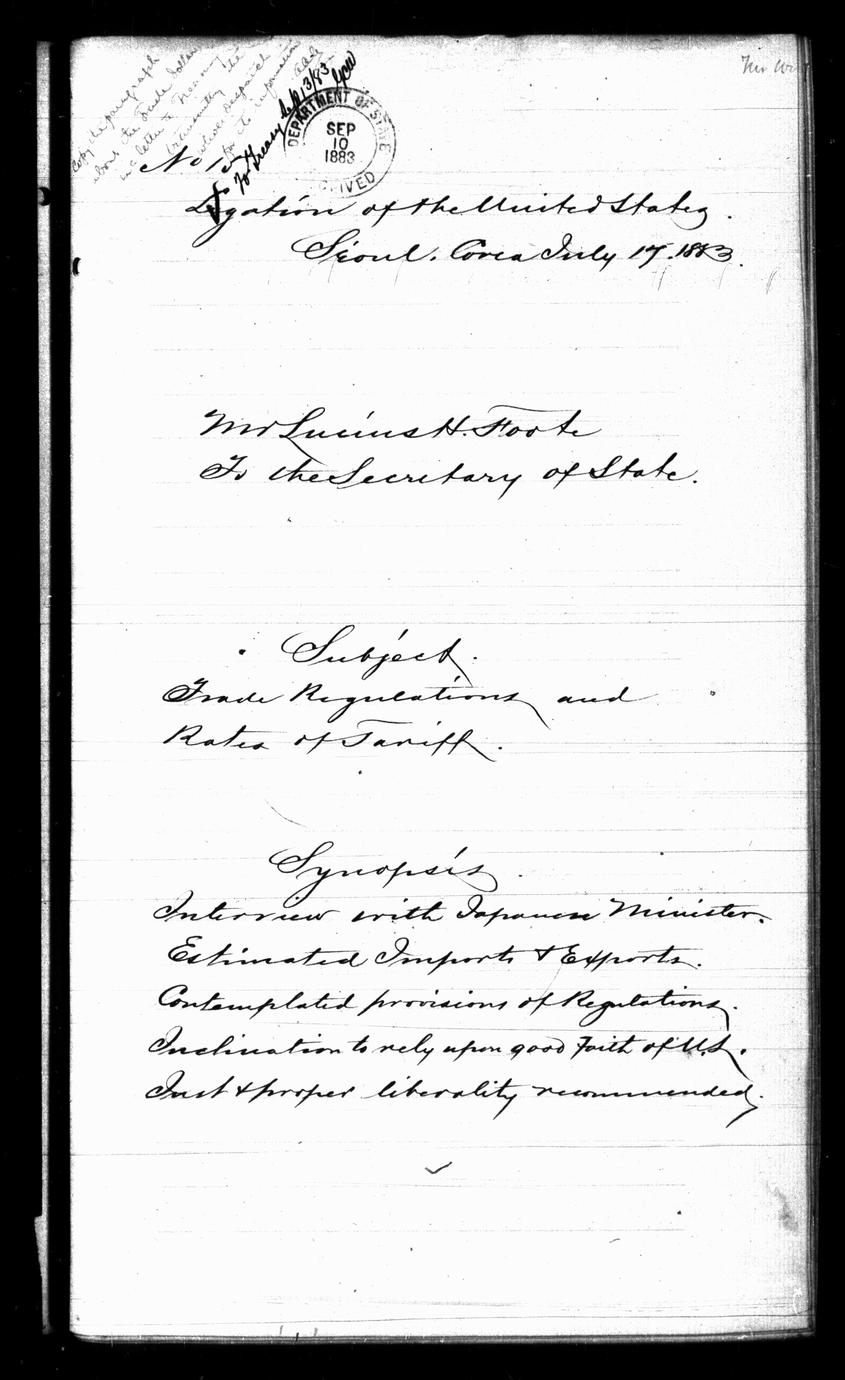 Copy the paragraph
about the trade dollar
in a letter to Treasury
DEPARTMENT OF STATE
SEP
10
1883
To Treasy Sep 13/83
No 15
Legation of the United States.
Séoul. Corea July 17. 1883.
Mr Lucius H. Foote
To the Secretary of State.
Subject.
Trade Regulations and
Rates of Tariff.
Synopsis.
Interview with Japanese Minister.
Estimated Imports & Exports.
Contemplated provisions of Regulations.
Inclination to rely upon good Faith of U.S.
Just & proper liberality recommended.